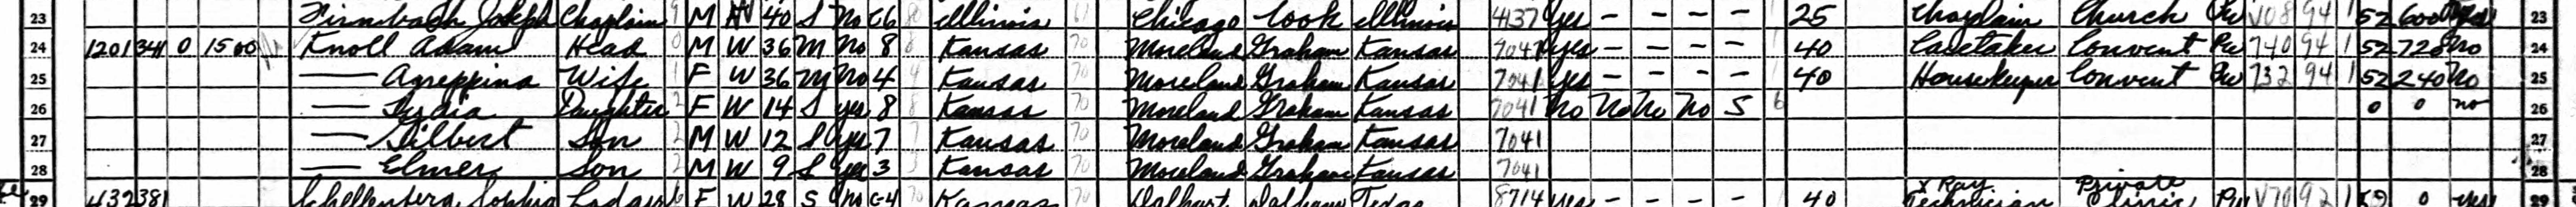 23 Joseph Chaplain M W 40 S No C6 Illinois Chicago Cook Illinois 4137 yes – – – – 25 Chaplain Church Pw V08 94 1 52 600 23
24 1201 341 0 1500 Knoll Adam Head 0 M W 36 M No 8 Kansas 70 Moreland Graham Kansas 7041 yes – – – – 40 Caretaker Convent Pw 740 94 1 52 728 No 24
25 — Agreppina Wife 1 F W 36 M No 4 Kansas 70 Moreland Graham Kansas 7041 yes – – – – 40 Housekeeper Convent Pw 732 94 1 52 240 No 25
26 — Lydia Daughter 2 F W 14 S yes 8 Kansas 70 Moreland Graham Kansas 7041 No No No No S 6 0 0 no 26
27 — Gilbert Son 2 M W 12 S yes 7 Kansas 70 Moreland Graham Kansas 7041 27
28 — Elmer Son 2 M W 9 S yes 3 Kansas 70 Moreland Graham Kansas 7041 28
29 432 381 Schellenberg Sophia Lodger 6 F W 28 S No C-4 Kansas 70 Dalhart Dallam Texas 8714 yes – – – – 40 X Ray Technician Private Clinic Pw V70 92 1 52 0 yes 29